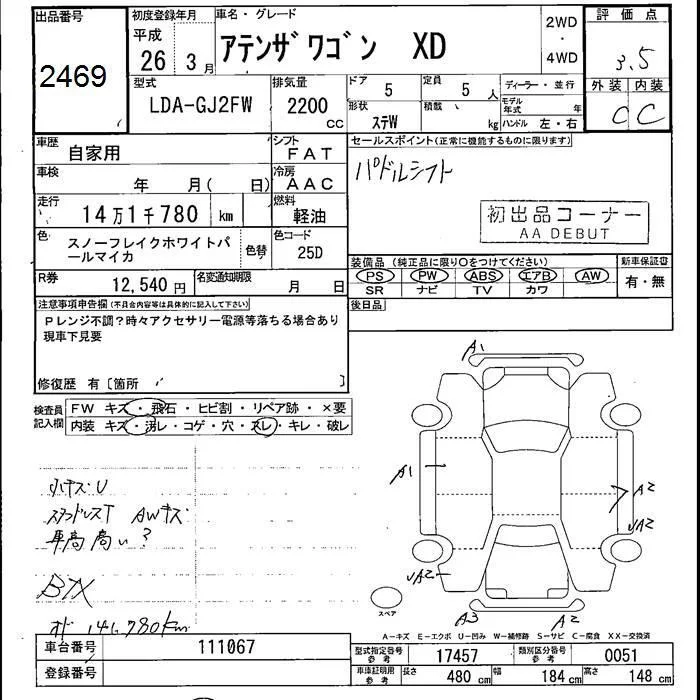 出品番号
2469
初度登録年月
平成
26年 3月
車名・グレード
アテンザワゴン XD
2WD
・
4WD
評価点
3.5
外装 内装
C C
型式
LDA-GJ2FW
排気量
2200 CC
ドア 5
定員 5人
形状 ステW
積載 kg
ディーラー・並行
モデル年式 年
ハンドル 左・右
車歴 自家用
シフト FAT
車検 年 月( 日)
冷房 AAC
走行 14万1千780 km
燃料 軽油
色 スノーフレイクホワイトパールマイカ
色替
色コード 25D
R券 12,540円
名変通知期限 月 日
セールスポイント(正常に機能するものに限ります)
パドルシフト
初出品コーナー
AA DEBUT
装備品(純正品に限り○をつけてください)
新車保証書
PS PW ABS エアB AW
SR ナビ TV カワ
有・無
後日品
注意事項申告欄(不具合内容等は具体的に記入して下さい)
Pレンジ不調?時々アクセサリー電源等落ちる場合あり
現車下見要
修復歴 有〔箇所 〕
検査員記入欄
FW キズ・飛石・ヒビ割・リペア跡・×要
内装 キズ・汚レ・コゲ・穴・スレ・キレ・破レ
小キズU
スタッドレスT AWキズ
車高高い?
オド 141,780km
A1
A1
A2
A2
A3
A2
スペア
A-キズ E-エクボ U-凹み W-補修跡 S-サビ C-腐食 XX-交換済
車台番号 111067
登録番号
型式指定番号 参考 17457
類別区分番号 参考 0051
車庫証明用 参考 長さ 480 cm 幅 184 cm 高さ 148 cm